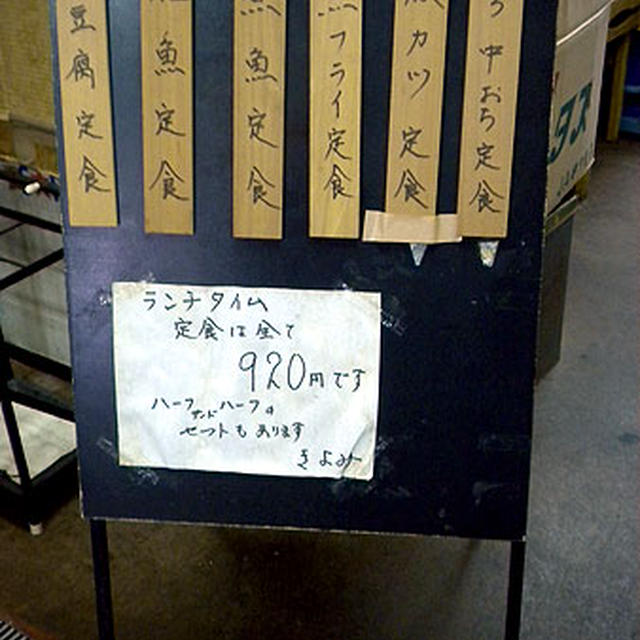 豆腐定食
魚定食
魚定食
フライ定食
カツ定食
中おち定食
ランチタイム
定食は全て
920円です
ハーフアンドハーフの
セットもあります
きよみ
タス